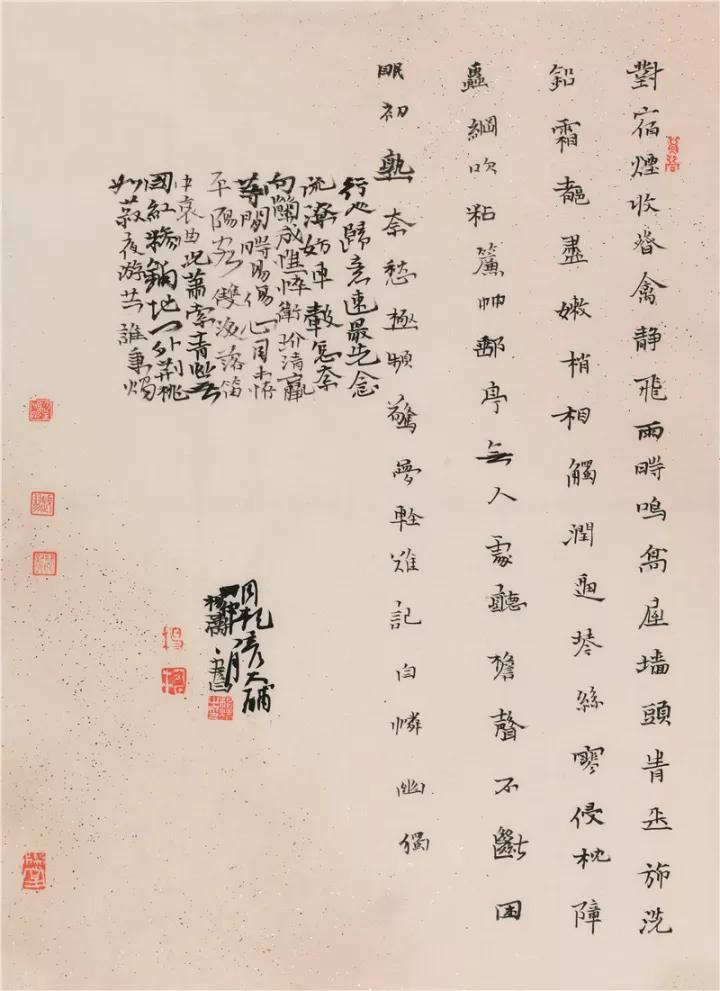 對宿煙收春禽静飛雨時鳴高屋墻頭青玉旆洗
鉛霜都盡嫩梢相觸潤逼琴絲寒侵枕障
蟲網吹粘簾竹郵亭無人處聽檐聲不斷困
眠初熟奈愁極頻驚夢輕難記自憐幽獨
行人歸意速最先念
流潦妨車轂怎奈
向蘭成憔悴衛玠清羸
等閒時易傷心目未怪
平陽客雙淚落笛
中哀曲況蕭索青蕪
國紅糝鋪地門外荊桃
如菽夜游共誰秉燭
周邦彦大酺